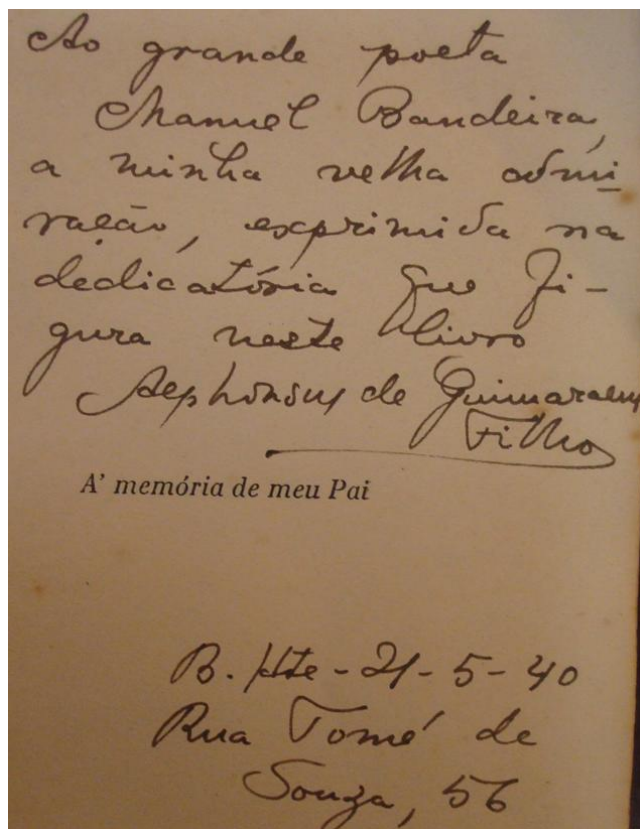 Ao grande poeta
Manuel Bandeira,
a minha velha admi-
ração, exprimida na
dedicatória que fi-
gura neste livro
Alphonsus de Guimaraens
Filho
A' memória de meu Pai
B. Hte - 21-5-40
Rua Tomé de
Souza, 56